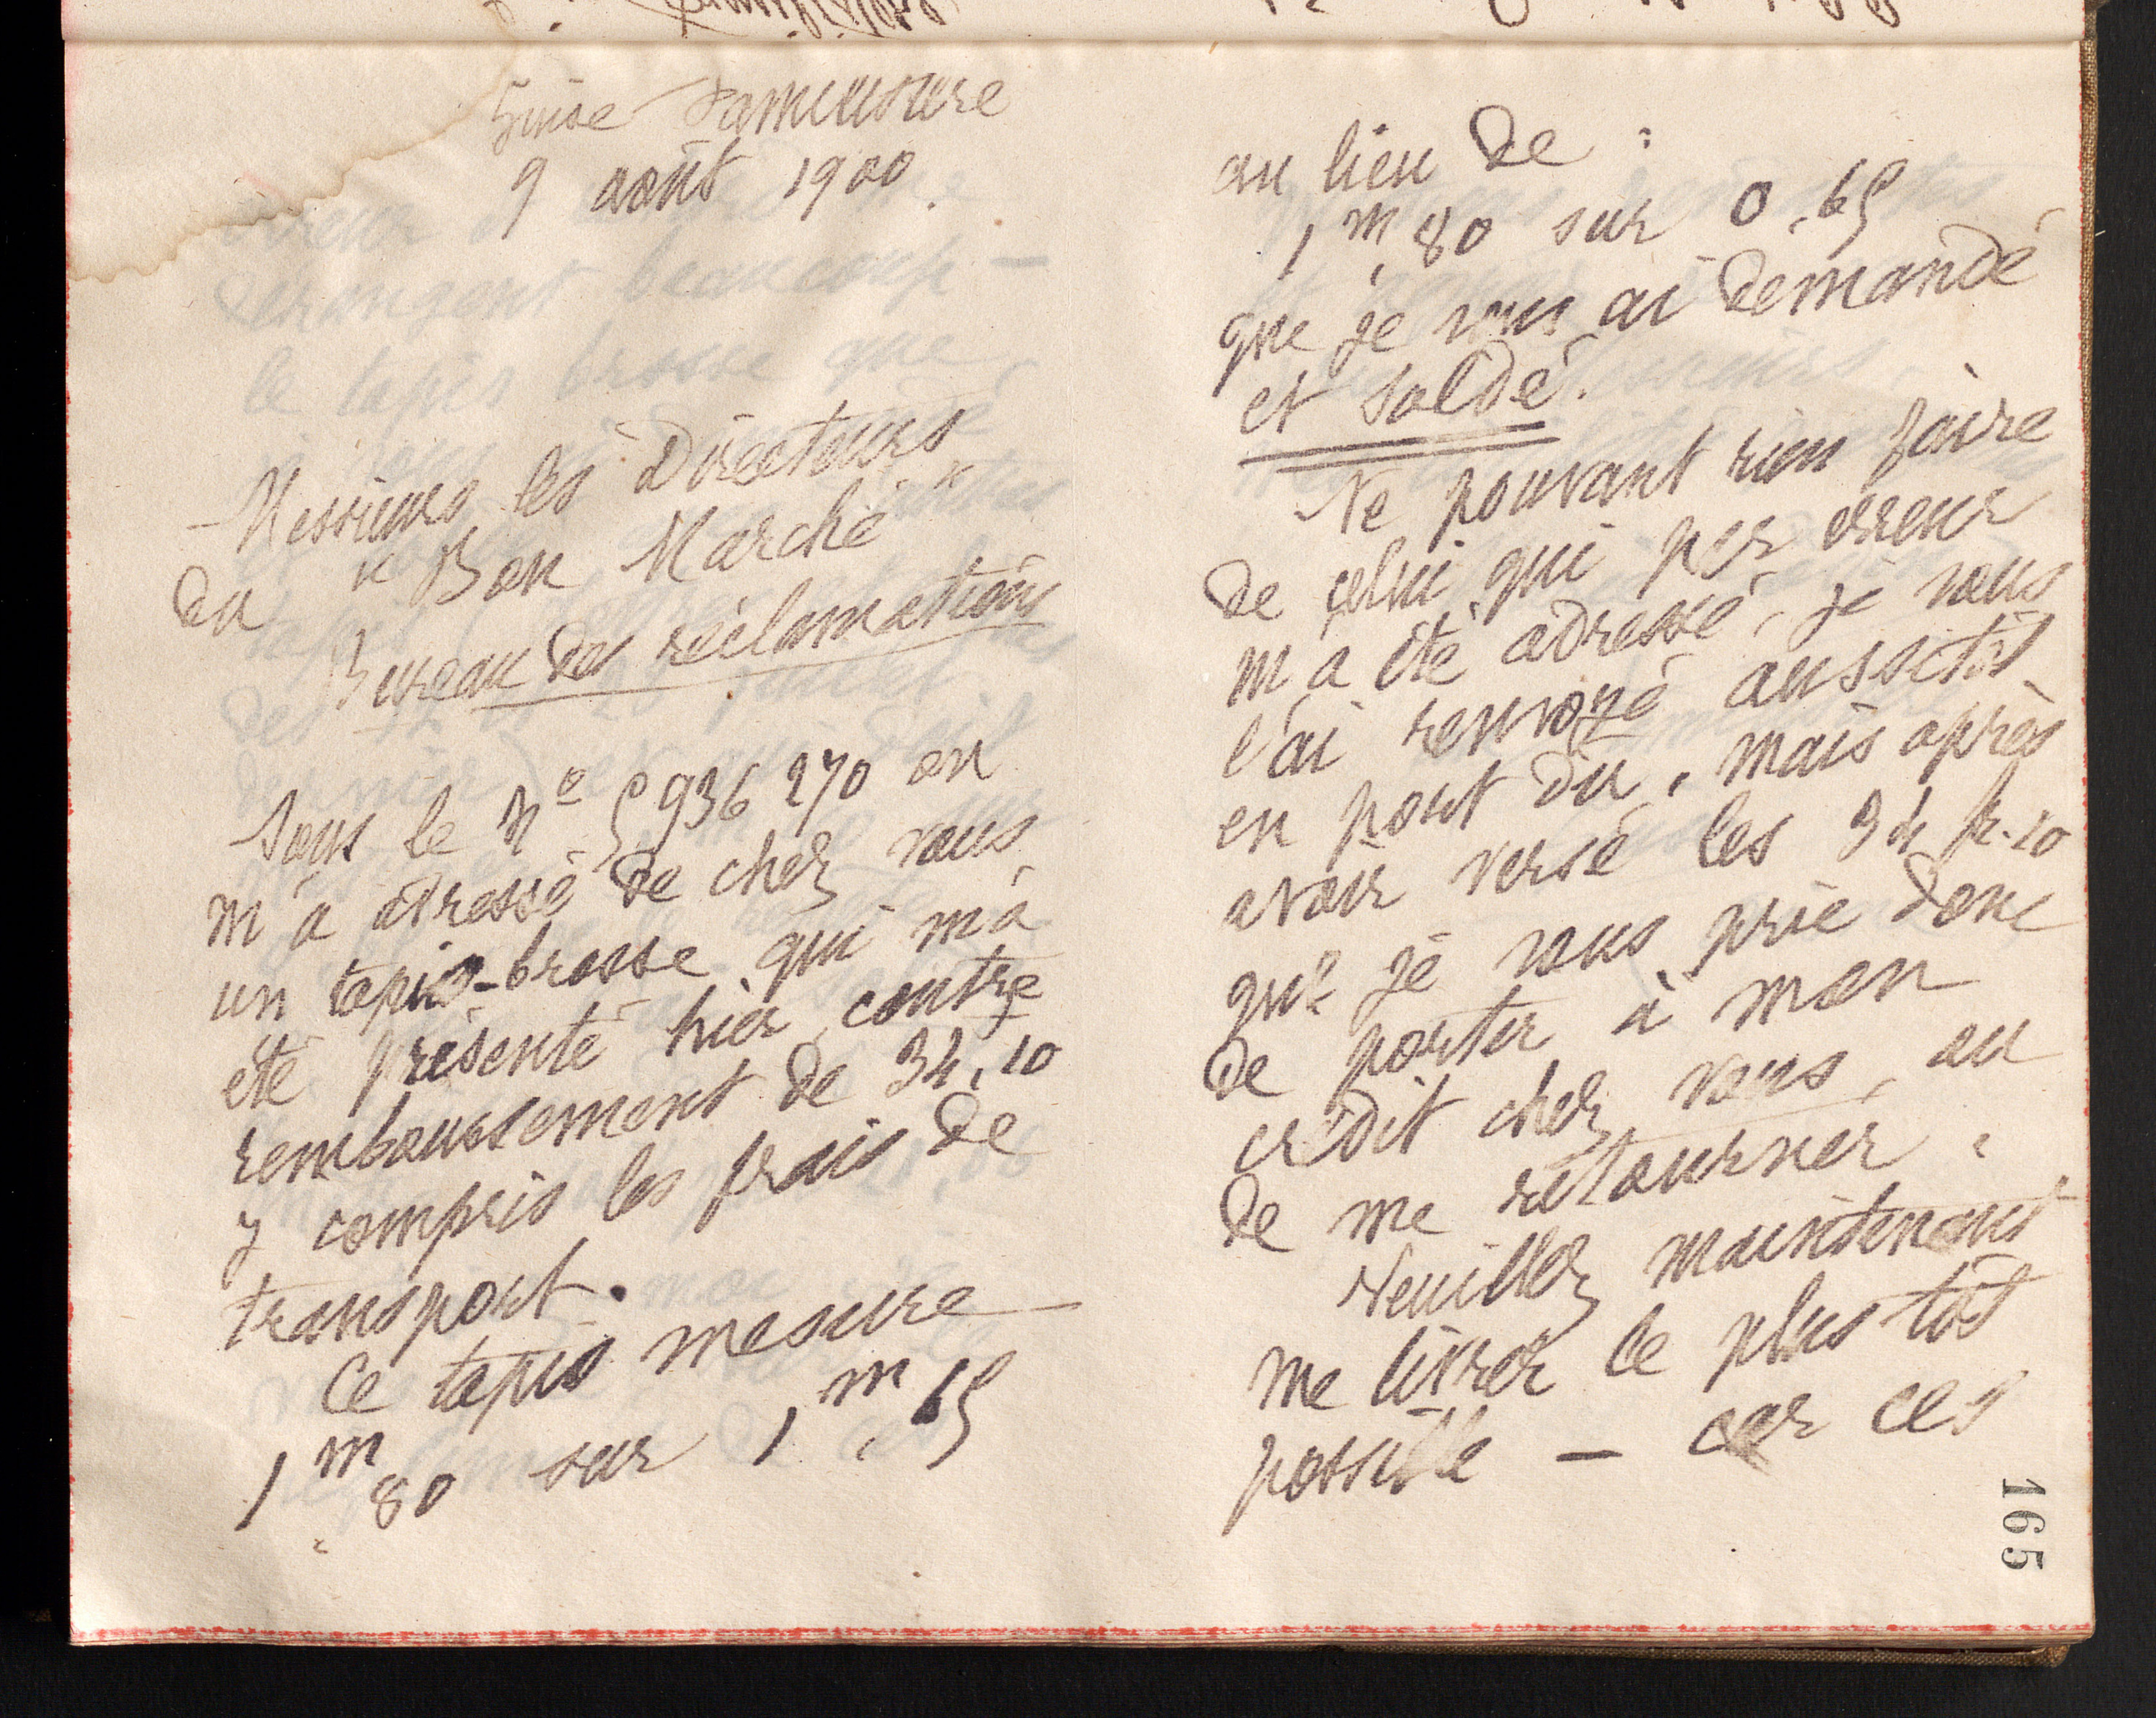 Guise Familistère
9 août 1900.
Messieurs les Directeurs
du "Bon Marché"
Bureau des réclamations
Sous le No 5936270 on
m'a adressé de chez vous
un tapis-brosse qui m'a
été présenté hier, contre
remboursement de 34,10
y compris les frais de
transport.
Ce tapis mesure
1m,80 sur 1m,65
au lieu de :
1m,80 sur 0,65
que je vous ai demandé
et soldé.
Ne pouvant rien faire
de celui qui par erreur
m'a été adressé, je vous
l'ai renvoyé aussitôt
en port dû, mais après
avoir versé les 34 fr. 10
que je vous prie donc
de porter à mon
crédit chez vous, ou
de me retourner.
Veuillez maintenant
me livrer le plus tôt
possible — car ces
165